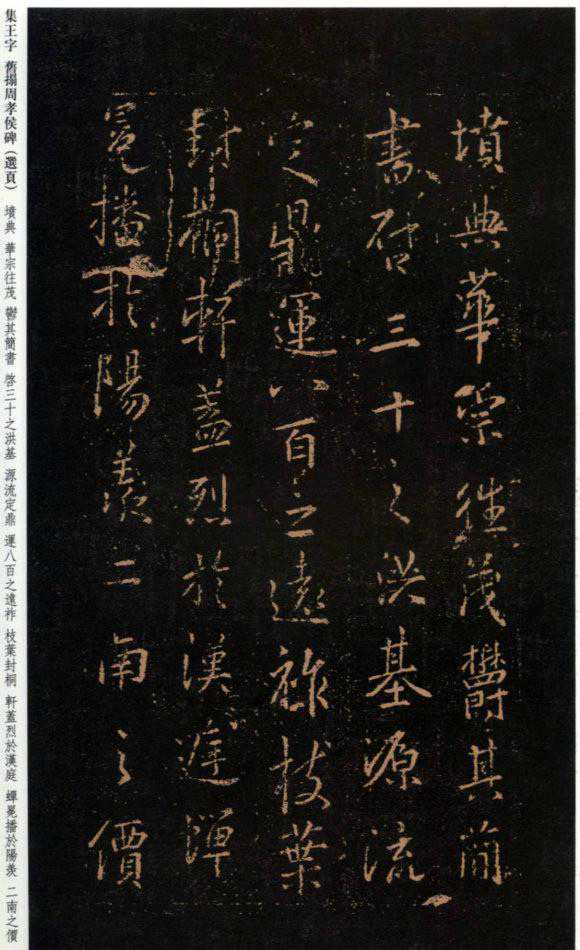 墳典華宗往茂欝其簡
書啓三十之洪基源流
定鼎運八百之遠祚枝葉
封桐軒蓋烈於漢庭蟬
冕播於陽羨二南之價
集王字 舊搨周孝侯碑（選頁） 墳典 華宗往茂 鬱其簡書 啓三十之洪基 源流定鼎 運八百之遠祚 枝葉封桐 軒蓋烈於漢庭 蟬冕播於陽羨 二南之價